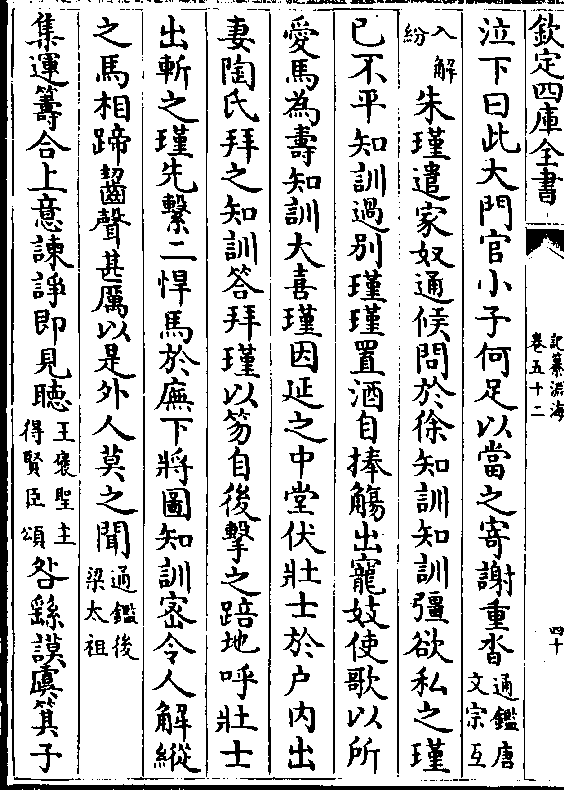 欽定四庫全書
記纂淵海
卷五十二
四十
泣下曰此大門官小子何足以當之寄謝重沓通鑑唐文宗互
入解紛朱瑾遣家奴通候問於徐知訓知訓彊欲私之瑾
已不平知訓過别瑾瑾置酒自捧觴出寵妓使歌以所
愛馬為壽知訓大喜瑾因延之中堂伏壯士於户内出
妻陶氏拜之知訓答拜瑾以笏自後擊之踣地呼壯士
出斬之瑾先繫二悍馬於廡下將圖知訓宻令人解縱
之馬相蹄齧聲甚厲以是外人莫之聞通鑑後梁太祖
集運籌合上意諫諍即見聽王襃聖主得賢臣頌咎繇謨虞箕子